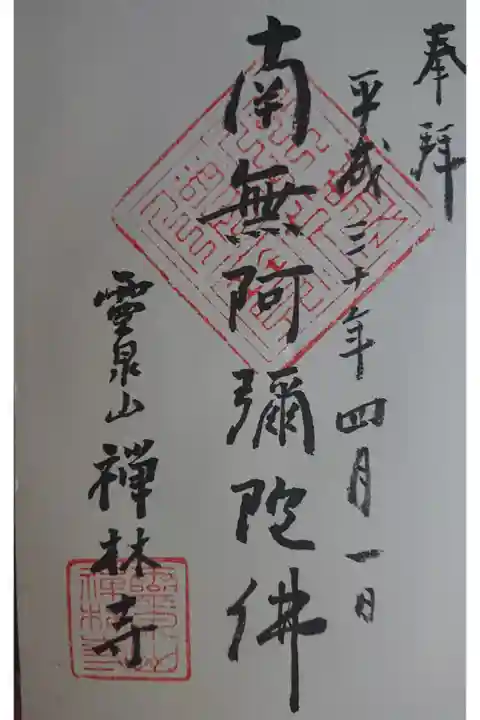 奉拜
平成三十年四月一日
南無阿彌陀佛
霊泉山禅林寺